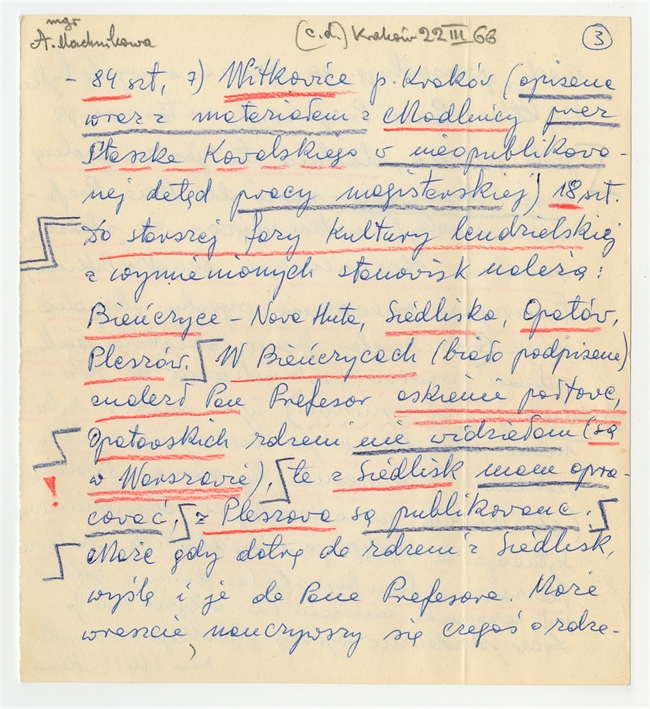 mgr
A. Machnikowa
(c.d.) Kraków 22 III 66
3
- 84 szt, 7) Witkowice p. Kraków (opisane
wraz z materiałem z Modlnicy przez
Płaszka Kowalskiego w nieopublikowa-
nej dotąd pracy magisterskiej) 18 szt.
Do starszej fazy kultury lendzielskiej
z wymienionych stanowisk należą:
Bieńczyce - Nowa Huta, Siedliska, Opatów,
Pleszów. W Bieńczycach (biało podpisane)
znalazł Pan Profesor
Opatowskich rdzeni nie widziałam (są
w Warszawie), te z Siedlisk mam opra-
cować, z Pleszowa są publikowane.
Może gdy dotrę do rdzeni z Siedlisk,
wyślę i je do Pana Profesora. Może
wreszcie nauczywszy się czegoś o rdze-